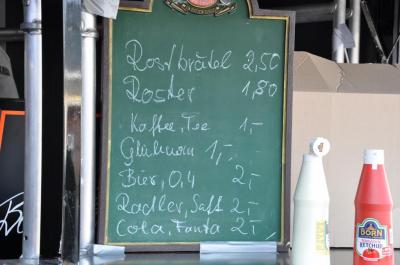 Rostbrätel 2,50
Roster 1,80
Kaffee, Tee 1,-
Glühwein 1,-
Bier, 0,4 2,-
Radler, Saft 2,-
Cola, Fanta 2,-
BORN
KETCHUP